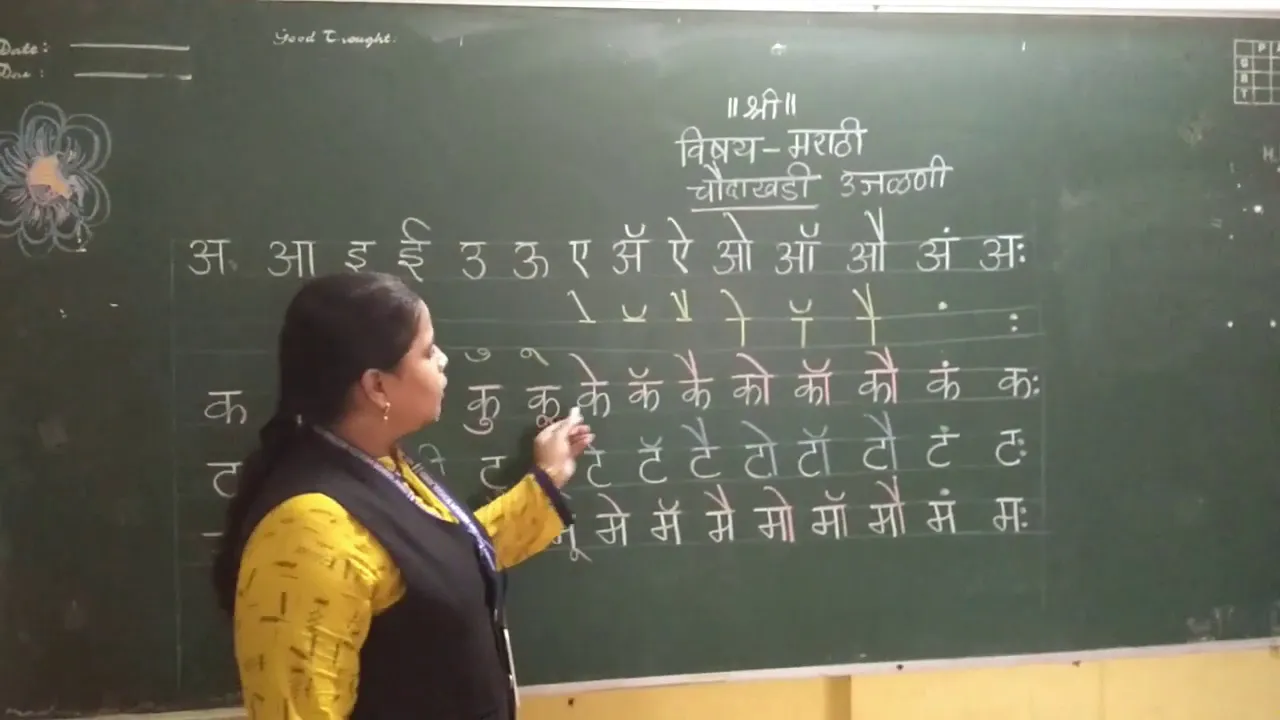 Date:
Good Trought.
॥श्री॥
विषय-मराठी
चौदाखडी उजळणी
अ आ इ ई उ ऊ ए ॲ ऐ ओ ऑ औ अं अः
े ॅ ै ो ॉ ौ ं ः
ु ू
क कु कू के कॅ कै को कॉ कौ कं कः
ट टे टॅ टै टो टॉ टौ टं टः
मू मे मॅ मै मो मॉ मौ मं मः